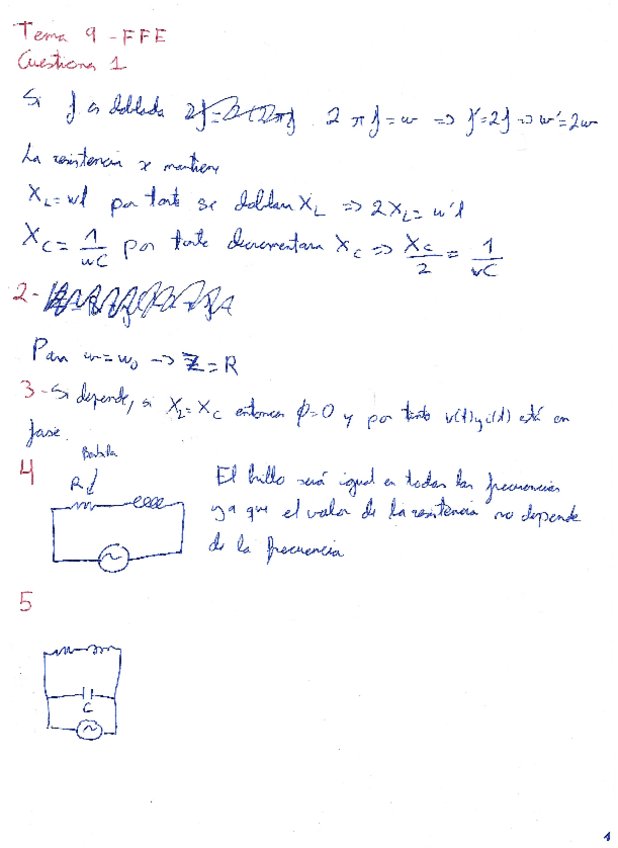 Tema 9 - FFE
Cuestiones 1
Si f es doblada 2πf = w => f' = 2f => w' = 2w
La resistencia se mantiene
X_L = wl por tanto se doblan X_L => 2X_L = w'l
X_C = 1/wC por tanto decrementara X_C => X_C/2 = 1/wC
2-
Para w = w₀ -> Z = R
3- Si depende, si X_L = X_C entonces φ=0 y por tanto v(t) y i(t) está en
fase.
4
Bombilla
R
El brillo será igual en todas las frecuencias
ya que el valor de la resistencia no depende
de la frecuencia
5
C
1